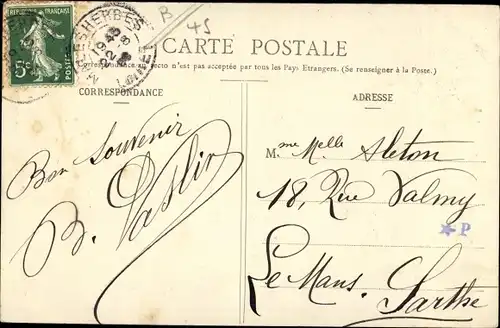 RÉPUBLIQUE FRANÇAISE
5c
POSTES
MALESHERBES
LOIRET
B
45
CARTE POSTALE
Correspondance au recto n'est pas acceptée par tous les Pays Etrangers. (Se renseigner à la Poste.)
CORRESPONDANCE
ADRESSE
Bon Souvenir
B. Vaslin
Mme Melle Aleton
18, Rue Valmy
★P
Le Mans.
Sarthe